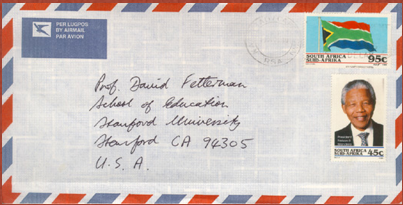 PER LUGPOS
BY AIRMAIL
PAR AVION
SOUTH AFRICA
SUID-AFRIKA 95c
Prof. David Fetterman
School of Education
Stanford University
Stanford CA 94305
U.S.A.
SOUTH AFRICA
SUID-AFRIKA 45c